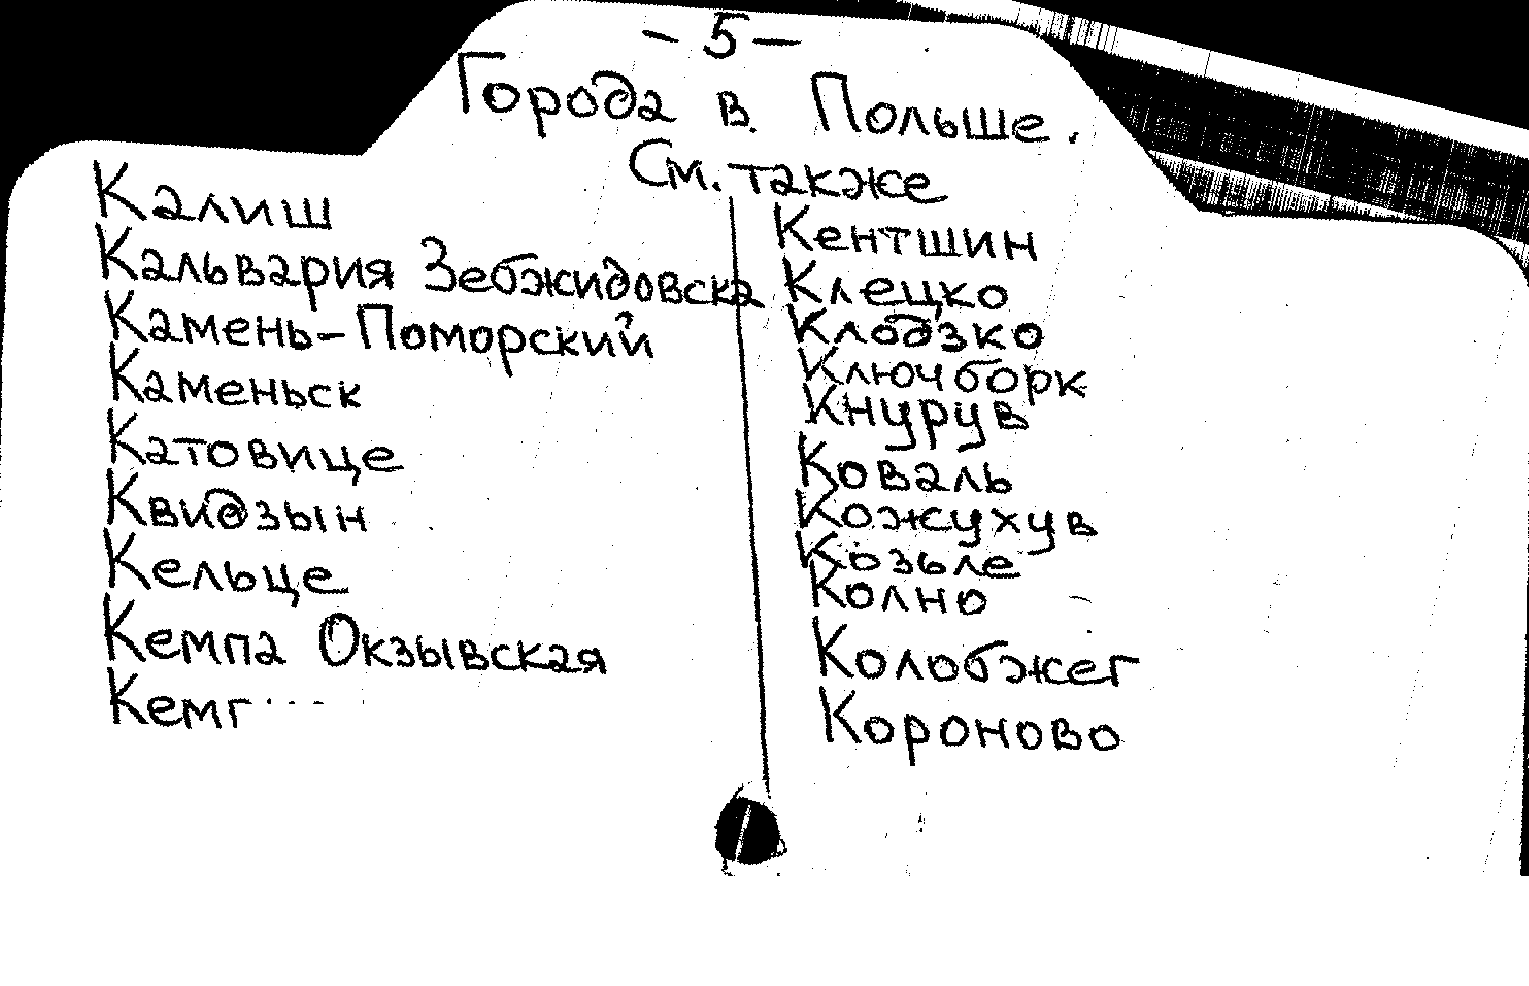 - 5 -
Города в. Польше.
См. также
Калиш
Кальвария Зебжидовска
Камень-Поморский
Каменьск
Катовице
Квидзын
Кельце
Кемпа Окзывская
Кемг....
Кентшин
Клецко
Клодзко
Ключборк
Кнурув
Коваль
Кожухув
Козьле
Колно
Колобжег
Короново